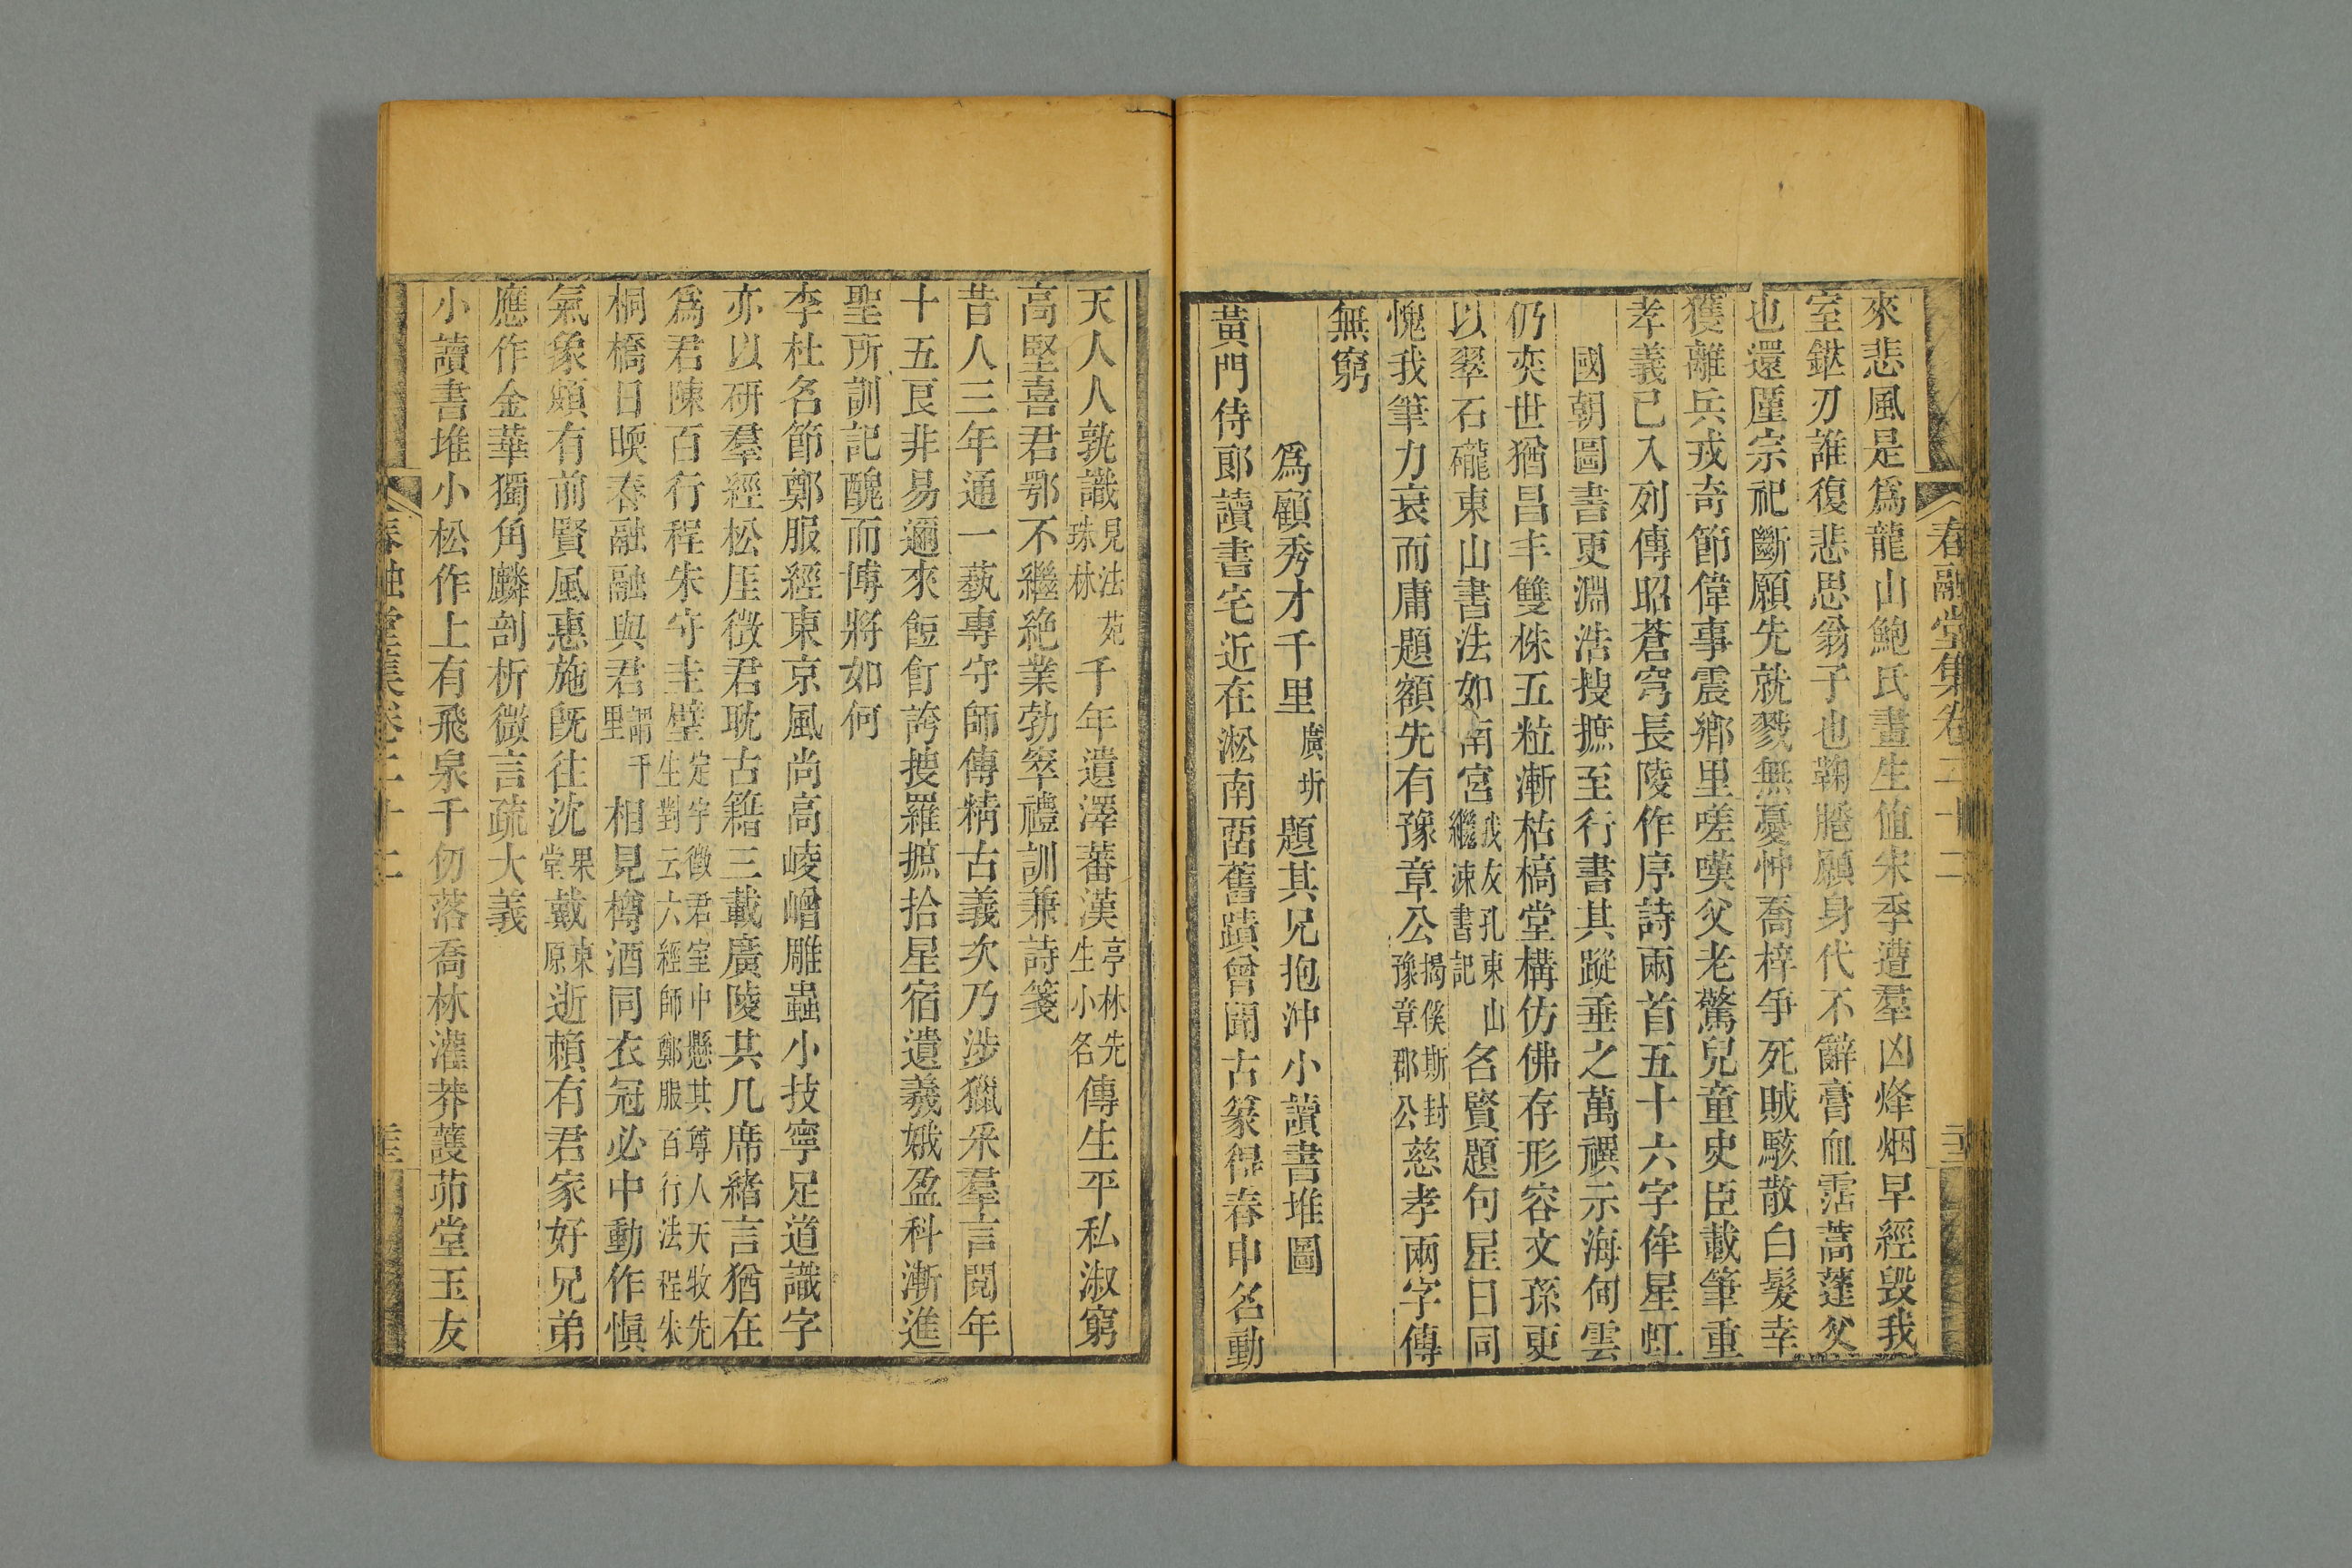 春融堂集卷二十二
來悲風是爲龍山鮑氏畫生值宋季遭羣凶烽烟早經毀我
室鋋刃誰復悲思翁子也鞠䠆願身代不辭膏血霑蒿蓬父
也還厪宗祀斷願先就戮無憂忡喬梓爭死賊駭散白髮幸
獲離兵戎奇節偉事震鄉里嗟嘆父老驚兒童史臣載筆重
孝義已入列傳昭蒼穹長陵作序詩兩首五十六字侔星虹
國朝圖書更淵浩搜摭至行書其蹤垂之萬禩示海何雲
仍奕世猶昌丰雙株五粒漸枯槁堂構仿佛存形容文孫更
以翠石礲東山書法如南宮我友孔東山繼涑書記名賢題句星日同
愧我筆力衰而庸題額先有豫章公揭傒斯封豫章郡公慈孝兩字傳
無窮
爲顧秀才千里廣圻題其兄抱沖小讀書堆圖
黃門侍郎讀書宅近在淞南畱舊蹟曾聞古篆得春申名動
天人人孰識見法苑珠林千年遺澤蕃漢亭林先生小名傳生平私淑窮
高堅喜君鄂不繼絶業勃窣禮訓兼詩箋
昔人三年通一藝專守師傳精古義次乃涉獵采羣言閱年
十五良非易邇來餖飣誇搜羅摭拾星宿遺羲娥盈科漸進
聖所訓記醜而博將如何
李杜名節鄭服經東京風尚高崚嶒雕蟲小技寧足道識字
亦以研羣經松厓徵君耽古籍三載廣陵共几席緒言猶在
爲君陳百行程朱守圭璧定宇徵君室中懸其尊人天牧先生對云六經師鄭服百行法程朱
桐橋日暖春融融與君謂千里相見樽酒同衣冠必中動作愼
氣象頗有前賢風惠施旣往沈果堂戴東原逝賴有君家好兄弟
應作金華獨角麟剖析微言疏大義
小讀書堆小松作上有飛泉千仞落喬林灌莽護茆堂玉友
春融堂集卷二十二